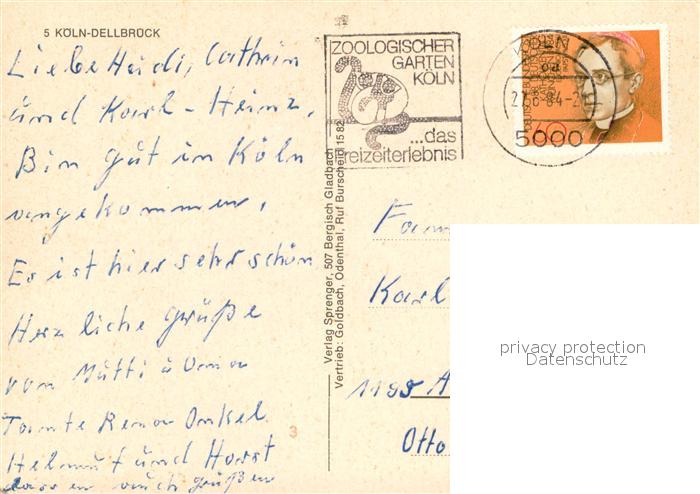 5 KÖLN-DELLBRÜCK
Liebe Heidi, Cathrin
und Karl-Heinz,
Bin gut in Köln
angekommen,
Es ist hier sehr schön
Herzliche grüße
von Mutti u
Tante Rena Onkel
Helmut und Horst
lassen auch grüßen
3
ZOOLOGISCHER
GARTEN
KÖLN
...das
Freizeiterlebnis
KÖLN
5000
Verlag Sprenger, 507 Bergisch Gladbach
Vertrieb: Goldbach, Odenthal, Ruf Burscheid 15 82
Fam
Karl
1195 A
Otto
privacy protection
Datenschutz